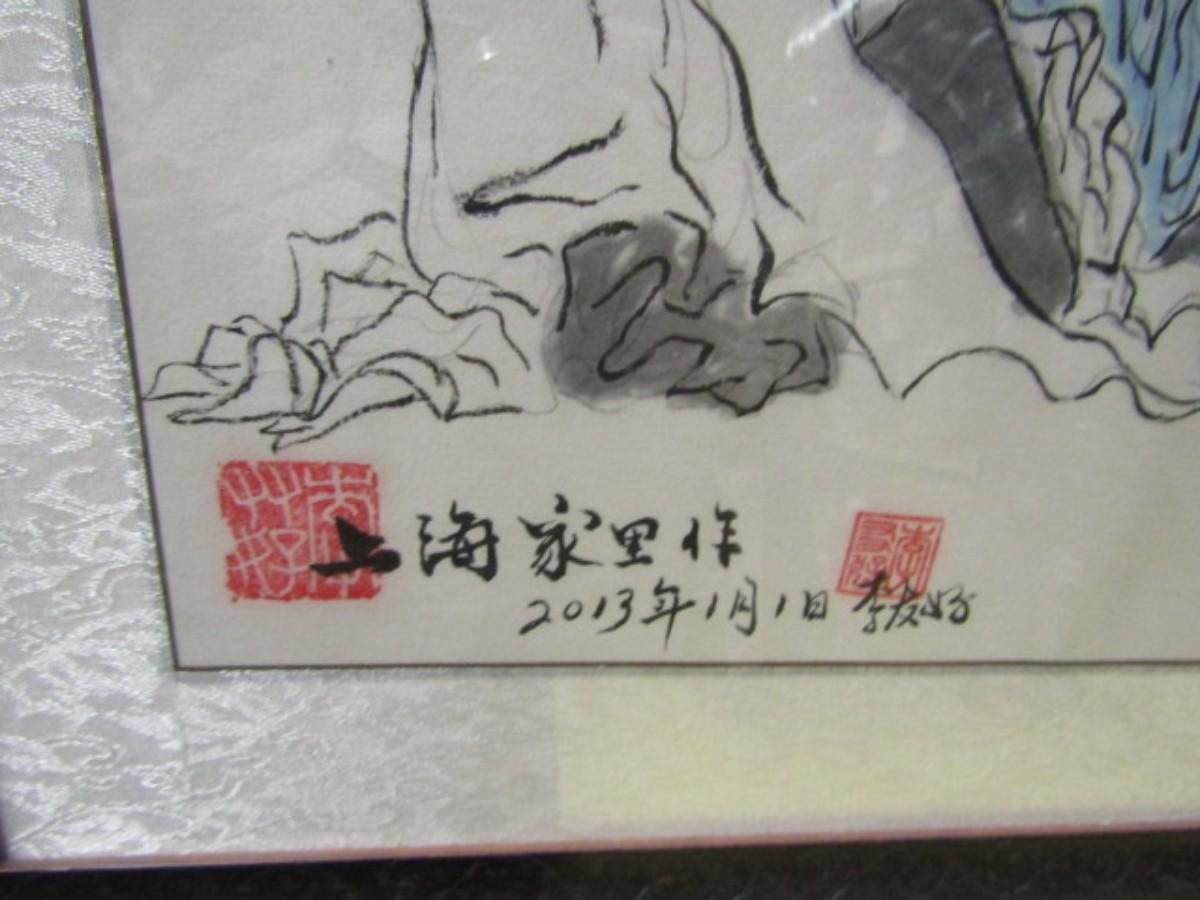 上海家里作
2013年1月1日 李友好